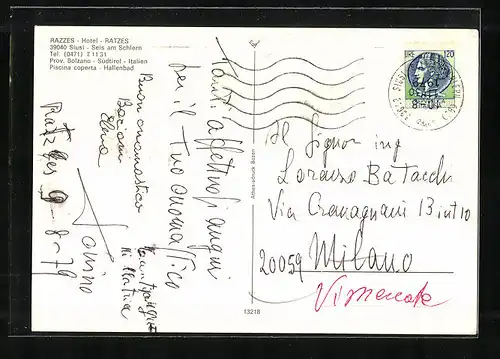 RAZZES - Hotel - RATZES
39040 Siusi - Seis am Schlern
Tel. (0471) 71131
Prov. Bolzano - Südtirol - Italien
Piscina coperta - Hallenbad
Tanti affettuosi auguri
per il tuo onomastico
Buon onomastico
Bacioni
Elena
Tonino
Ratzes 9-8-79
Athesiadruck Bozen
13218
LIRE 120
Al Signor ing
Lorenzo Batacchi
Via Cravagnani 13 int 10
20059 Milano
Vimercate